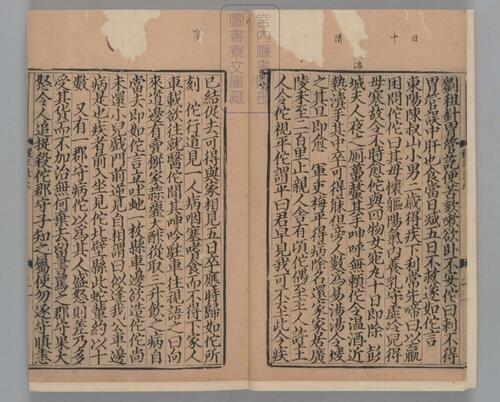 劉租針胃管訖便苦欬嗽欲臥不安佗曰刺不得
胃管誤中肝也食當日減五日不救遂如佗言
東陽陳叔山小男二歲得疾下利常先啼日以羸
困問佗佗曰其母懷軀陽氣內養乳中虛冷兒得
母寒故令不時愈佗與四物女宛丸十日即除　彭
城夫人夜之厠蠆螫其手呻呼無賴佗令溫湯近
熱漬手其中卒可得寐但旁人數為易湯湯令煖
之其旦即愈　軍吏梅平得病除名還家家居廣
陵未至二百里止親人舍有頃佗偶至主人許主
人令佗視平佗謂平曰君早見我可不至此今疾
已結促去可得與家相見五日卒應時歸如佗所
刻　佗行道見一人病咽塞嗜食而不得下家人
車載欲往就醫佗聞其呻吟駐車往視語之曰向
來道邊有賣餅家蒜韲大酢從取三升飲之病自
當去即如佗言立吐虵一枚縣車邊欲造佗佗尚
未還小兒戲門前逆見自相謂曰似逢我公車邊
病是也疾者前入坐見佗北壁縣此虵輩約以十
數　又有一郡守病佗以為其人盛怒則差乃多
受其貨而不加治無何棄去留書罵之郡守果大
怒令人追捉殺佗郡守子知之屬使勿逐守瞋恚
宮內廳書陵部
圖書寮文庫藏